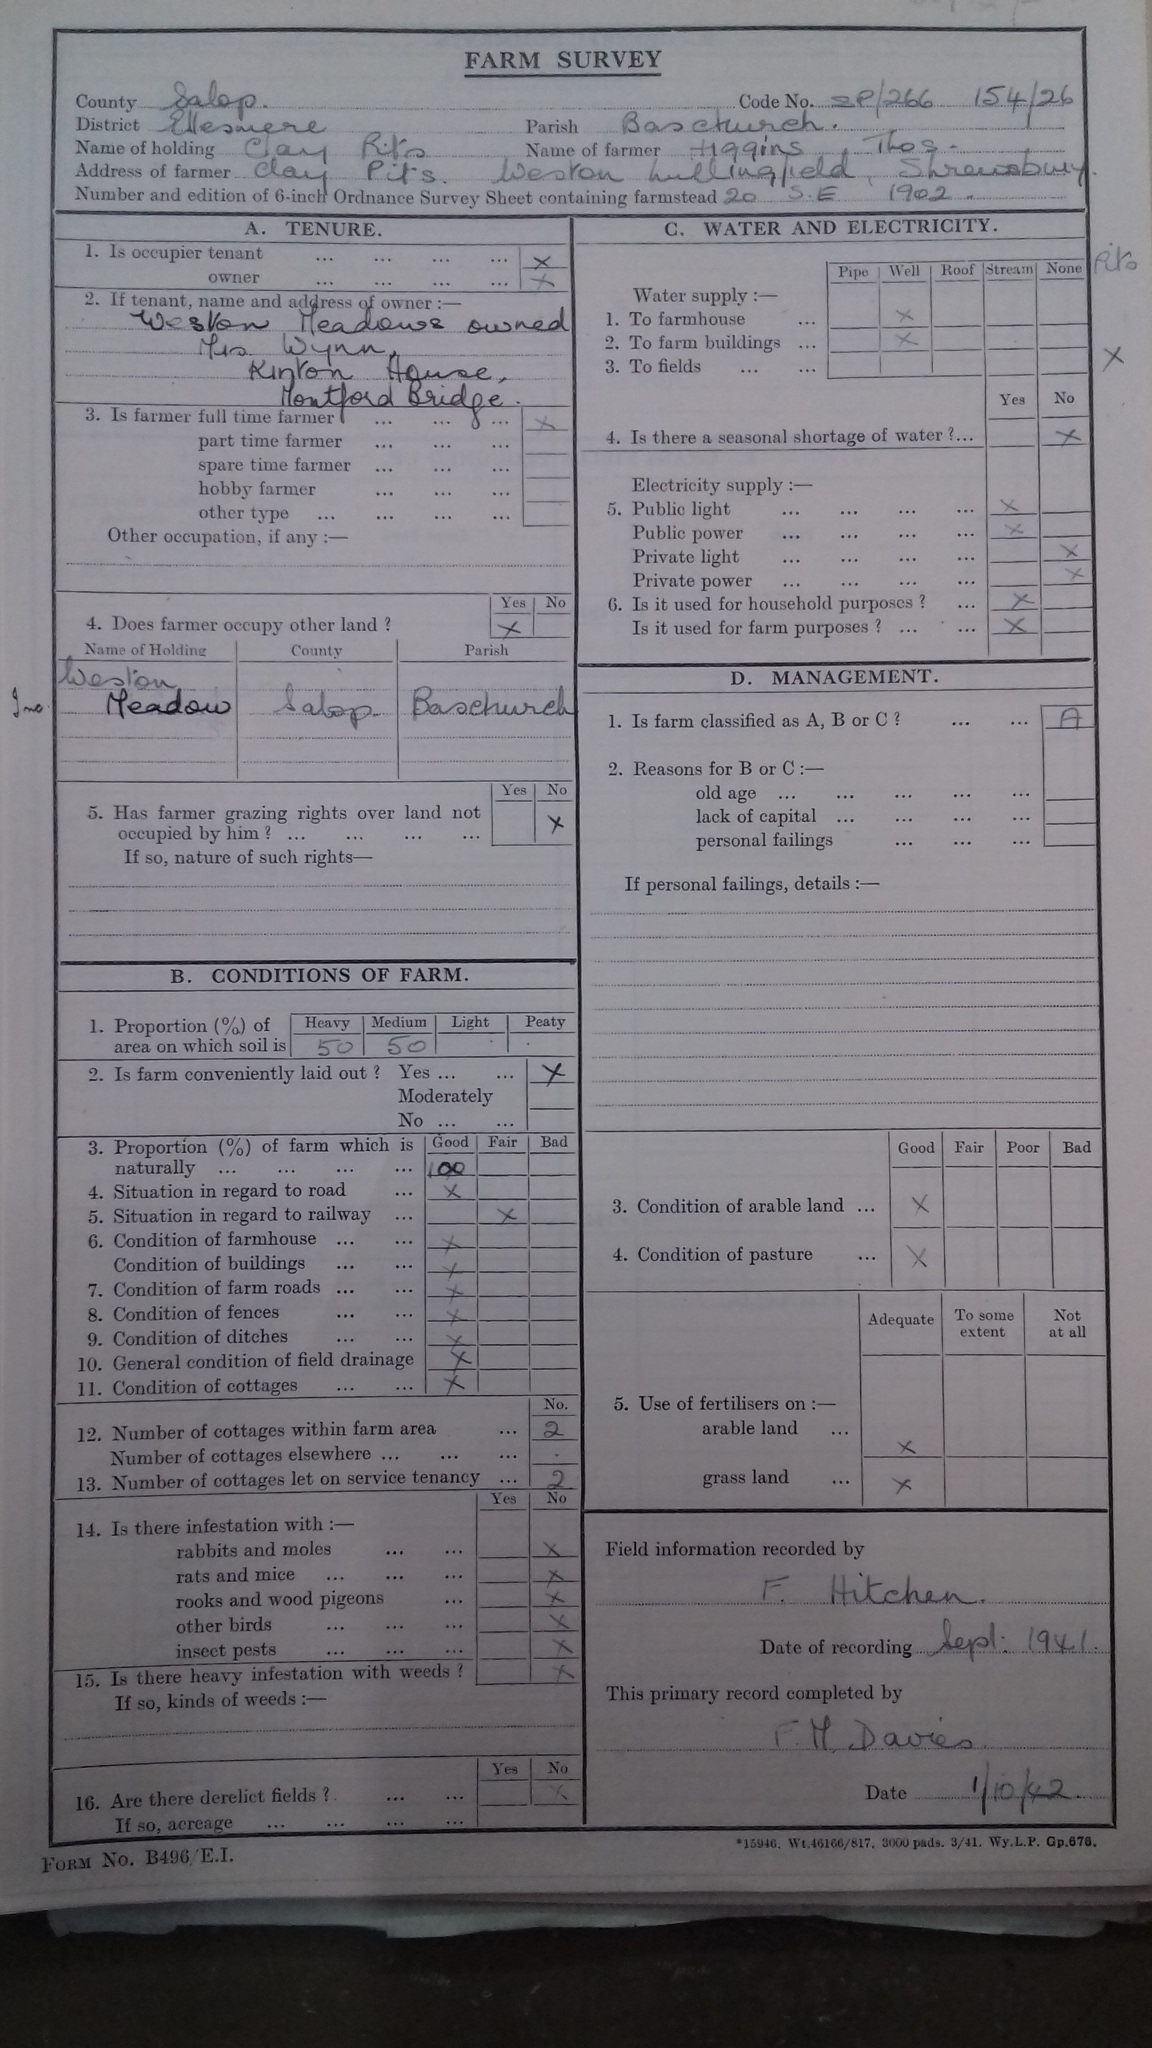 FARM SURVEY
County Salop. Code No. SP/266 154/26
District Ellesmere Parish Baschurch.
Name of holding Clay Pits Name of farmer Higgins Thos.
Address of farmer Clay Pits. Weston Lullingfield, Shrewsbury.
Number and edition of 6-inch Ordnance Survey Sheet containing farmstead 20 S.E 1902.
A. TENURE.
1. Is occupier tenant ... ... ... ... X
owner ... ... ... ... X
2. If tenant, name and address of owner :—
Weston Meadows owned
Mrs Wynn,
Kinton House,
Montford Bridge.
3. Is farmer full time farmer ... ... ... X
part time farmer ... ... ...
spare time farmer ... ... ...
hobby farmer ... ... ...
other type ... ... ... ...
Other occupation, if any :—
Yes No
4. Does farmer occupy other land ? X
Name of Holding County Parish
Weston
Inc. Meadow Salop Baschurch
Yes No
5. Has farmer grazing rights over land not
occupied by him ? ... ... ... ... X
If so, nature of such rights—
B. CONDITIONS OF FARM.
Heavy Medium Light Peaty
1. Proportion (%) of
area on which soil is 50 50
2. Is farm conveniently laid out ? Yes ... ... X
Moderately
No ... ...
Good Fair Bad
3. Proportion (%) of farm which is
naturally ... ... ... ... 100
4. Situation in regard to road ... X
5. Situation in regard to railway ... X
6. Condition of farmhouse ... ... X
Condition of buildings ... ... X
7. Condition of farm roads ... ... X
8. Condition of fences ... ... X
9. Condition of ditches ... ... X
10. General condition of field drainage X
11. Condition of cottages ... ... X
No.
12. Number of cottages within farm area ... 2
Number of cottages elsewhere ... ... ...
13. Number of cottages let on service tenancy ... 2
Yes No
14. Is there infestation with :—
rabbits and moles ... ... X
rats and mice ... ... ... X
rooks and wood pigeons ... X
other birds ... ... ... X
insect pests ... ... ... X
15. Is there heavy infestation with weeds ? X
If so, kinds of weeds :—
Yes No
16. Are there derelict fields ? ... ... X
If so, acreage ... ... ... ...
C. WATER AND ELECTRICITY.
Pipe Well Roof Stream None Pits
Water supply :—
1. To farmhouse ... X
2. To farm buildings ... X
3. To fields ... ... X
Yes No
4. Is there a seasonal shortage of water ?... X
Electricity supply :—
5. Public light ... ... ... ... X
Public power ... ... ... ... X
Private light ... ... ... ... X
Private power ... ... ... ... X
6. Is it used for household purposes ? ... X
Is it used for farm purposes ? ... ... X
D. MANAGEMENT.
1. Is farm classified as A, B or C ? ... ... A
2. Reasons for B or C :—
old age ... ... ... ... ...
lack of capital ... ... ... ...
personal failings ... ... ...
If personal failings, details :—
Good Fair Poor Bad
3. Condition of arable land ... X
4. Condition of pasture ... X
Adequate To some extent Not at all
5. Use of fertilisers on :—
arable land ... X
grass land ... X
Field information recorded by
F. Hitchen.
Date of recording Sept: 1941.
This primary record completed by
F. M. Davies
Date 1/10/42.
FORM No. B496/E.I.
*15946. Wt.46166/817. 3000 pads. 3/41. Wy.L.P. Gp.676.